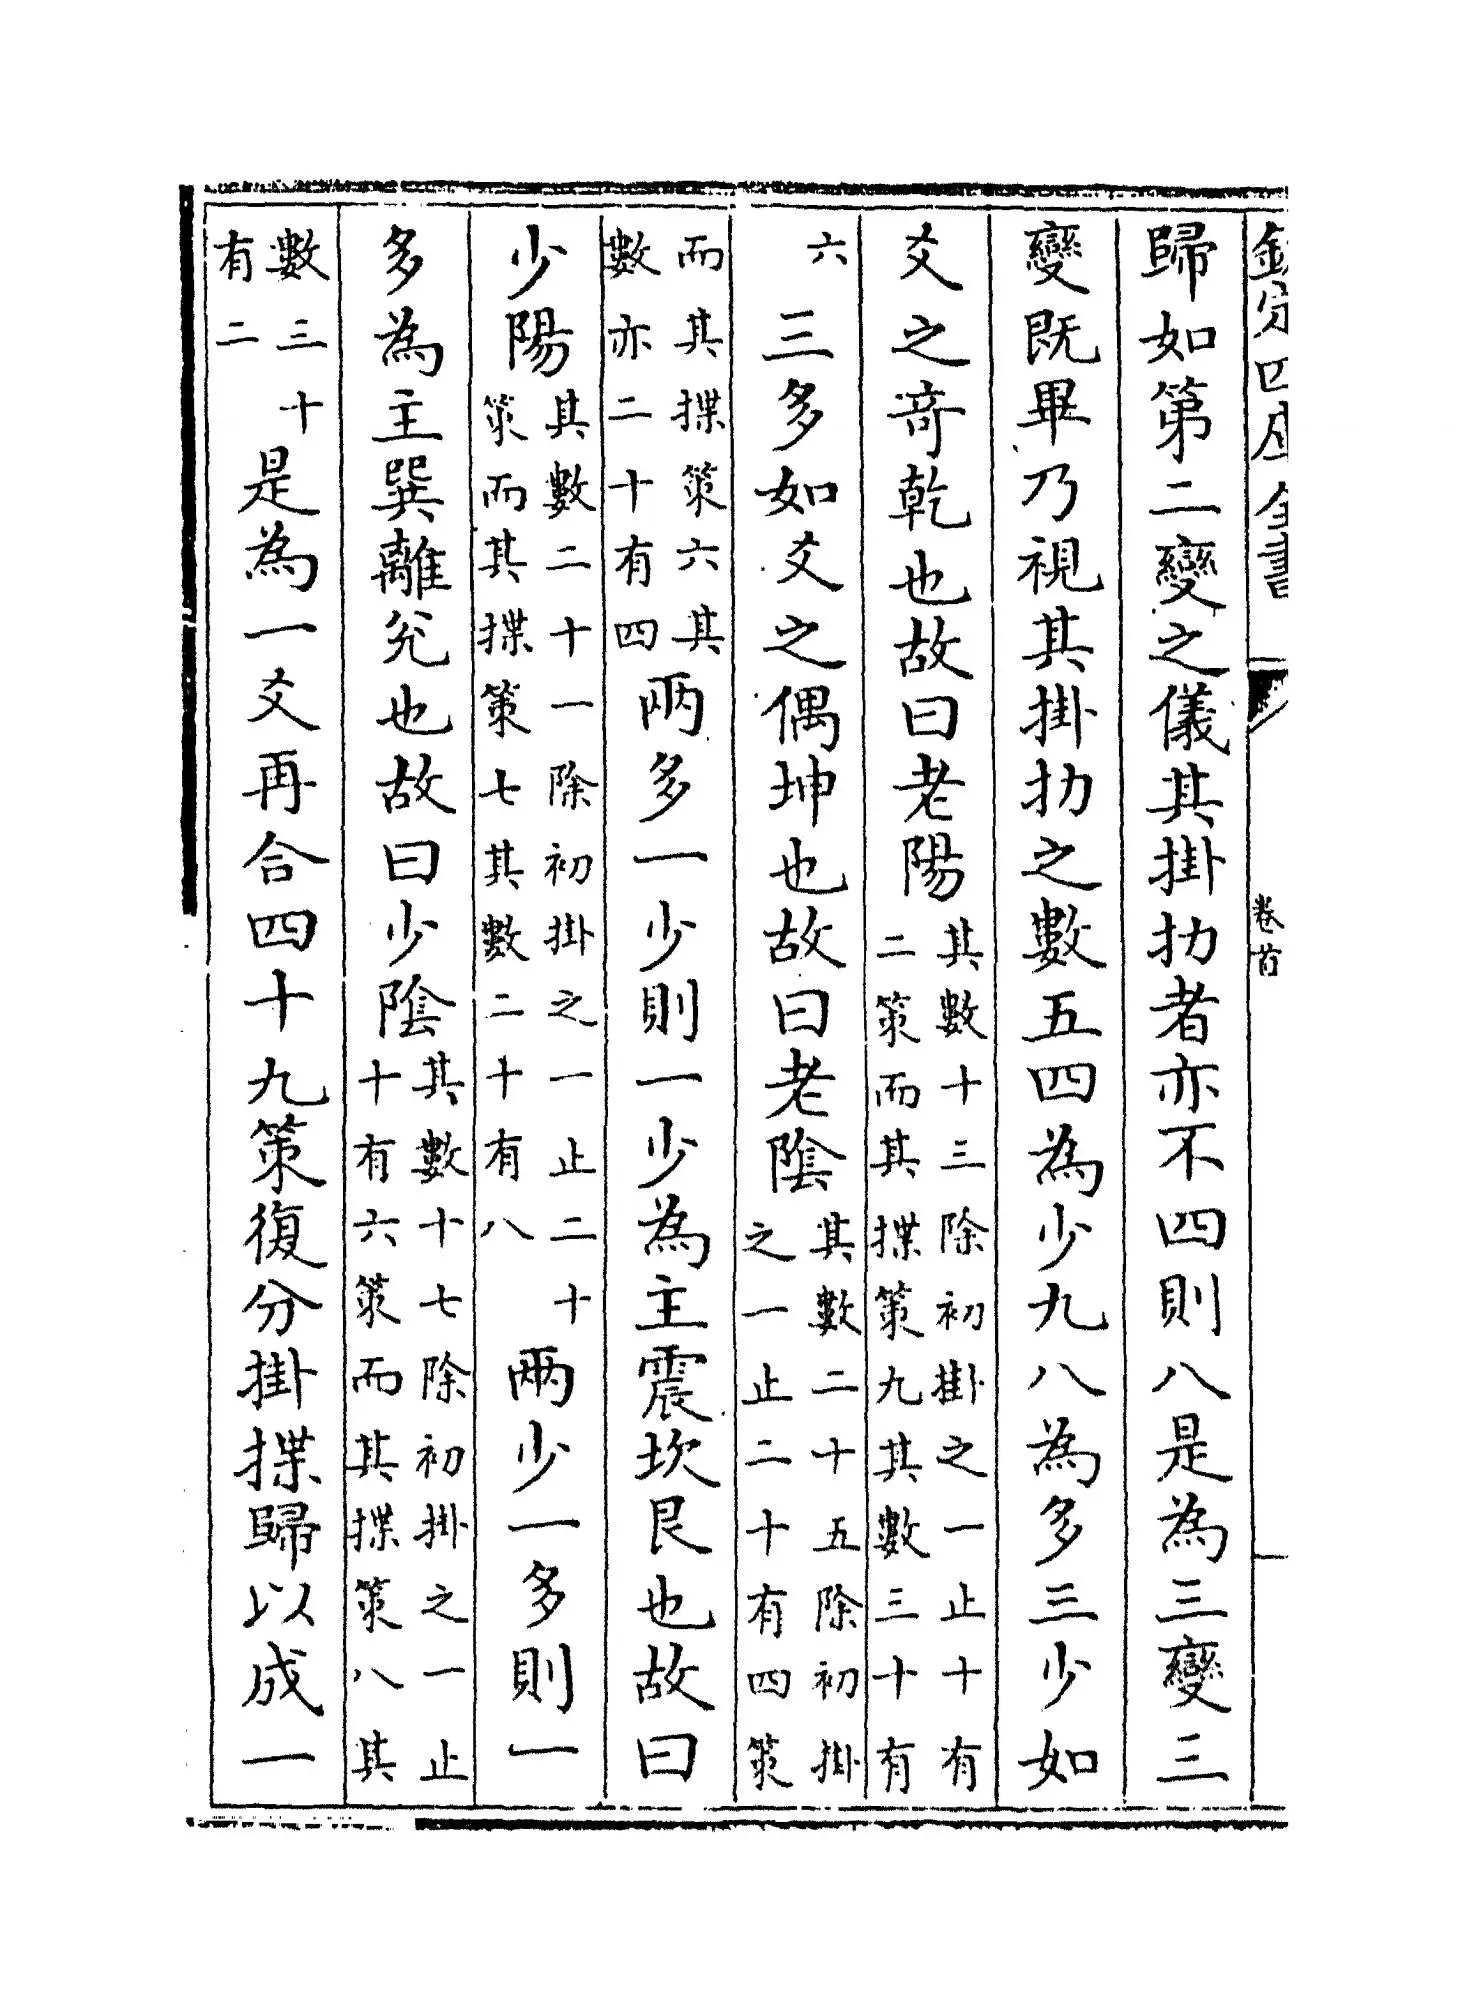 欽定四庫全書
卷首
歸如第二變之儀其掛扐者亦不四則八是為三變三
變既畢乃視其掛扐之數五四為少九八為多三少如
爻之竒乾也故曰老陽
其數十三除初掛之一止十有
二策而其揲策九其數三十有
六
三多如爻之偶坤也故曰老隂
其數二十五除初掛
之一止二十有四策
而其揲策六其
數亦二十有四
兩多一少則一少為主震坎艮也故曰
少陽
其數二十一除初掛之一止二十
策而其揲策七其數二十有八
兩少一多則一
多為主巽離兊也故曰少隂
其數十七除初掛之一止
十有六策而其揲策八其
數三十
有二
是為一爻再合四十九策復分掛揲歸以成一